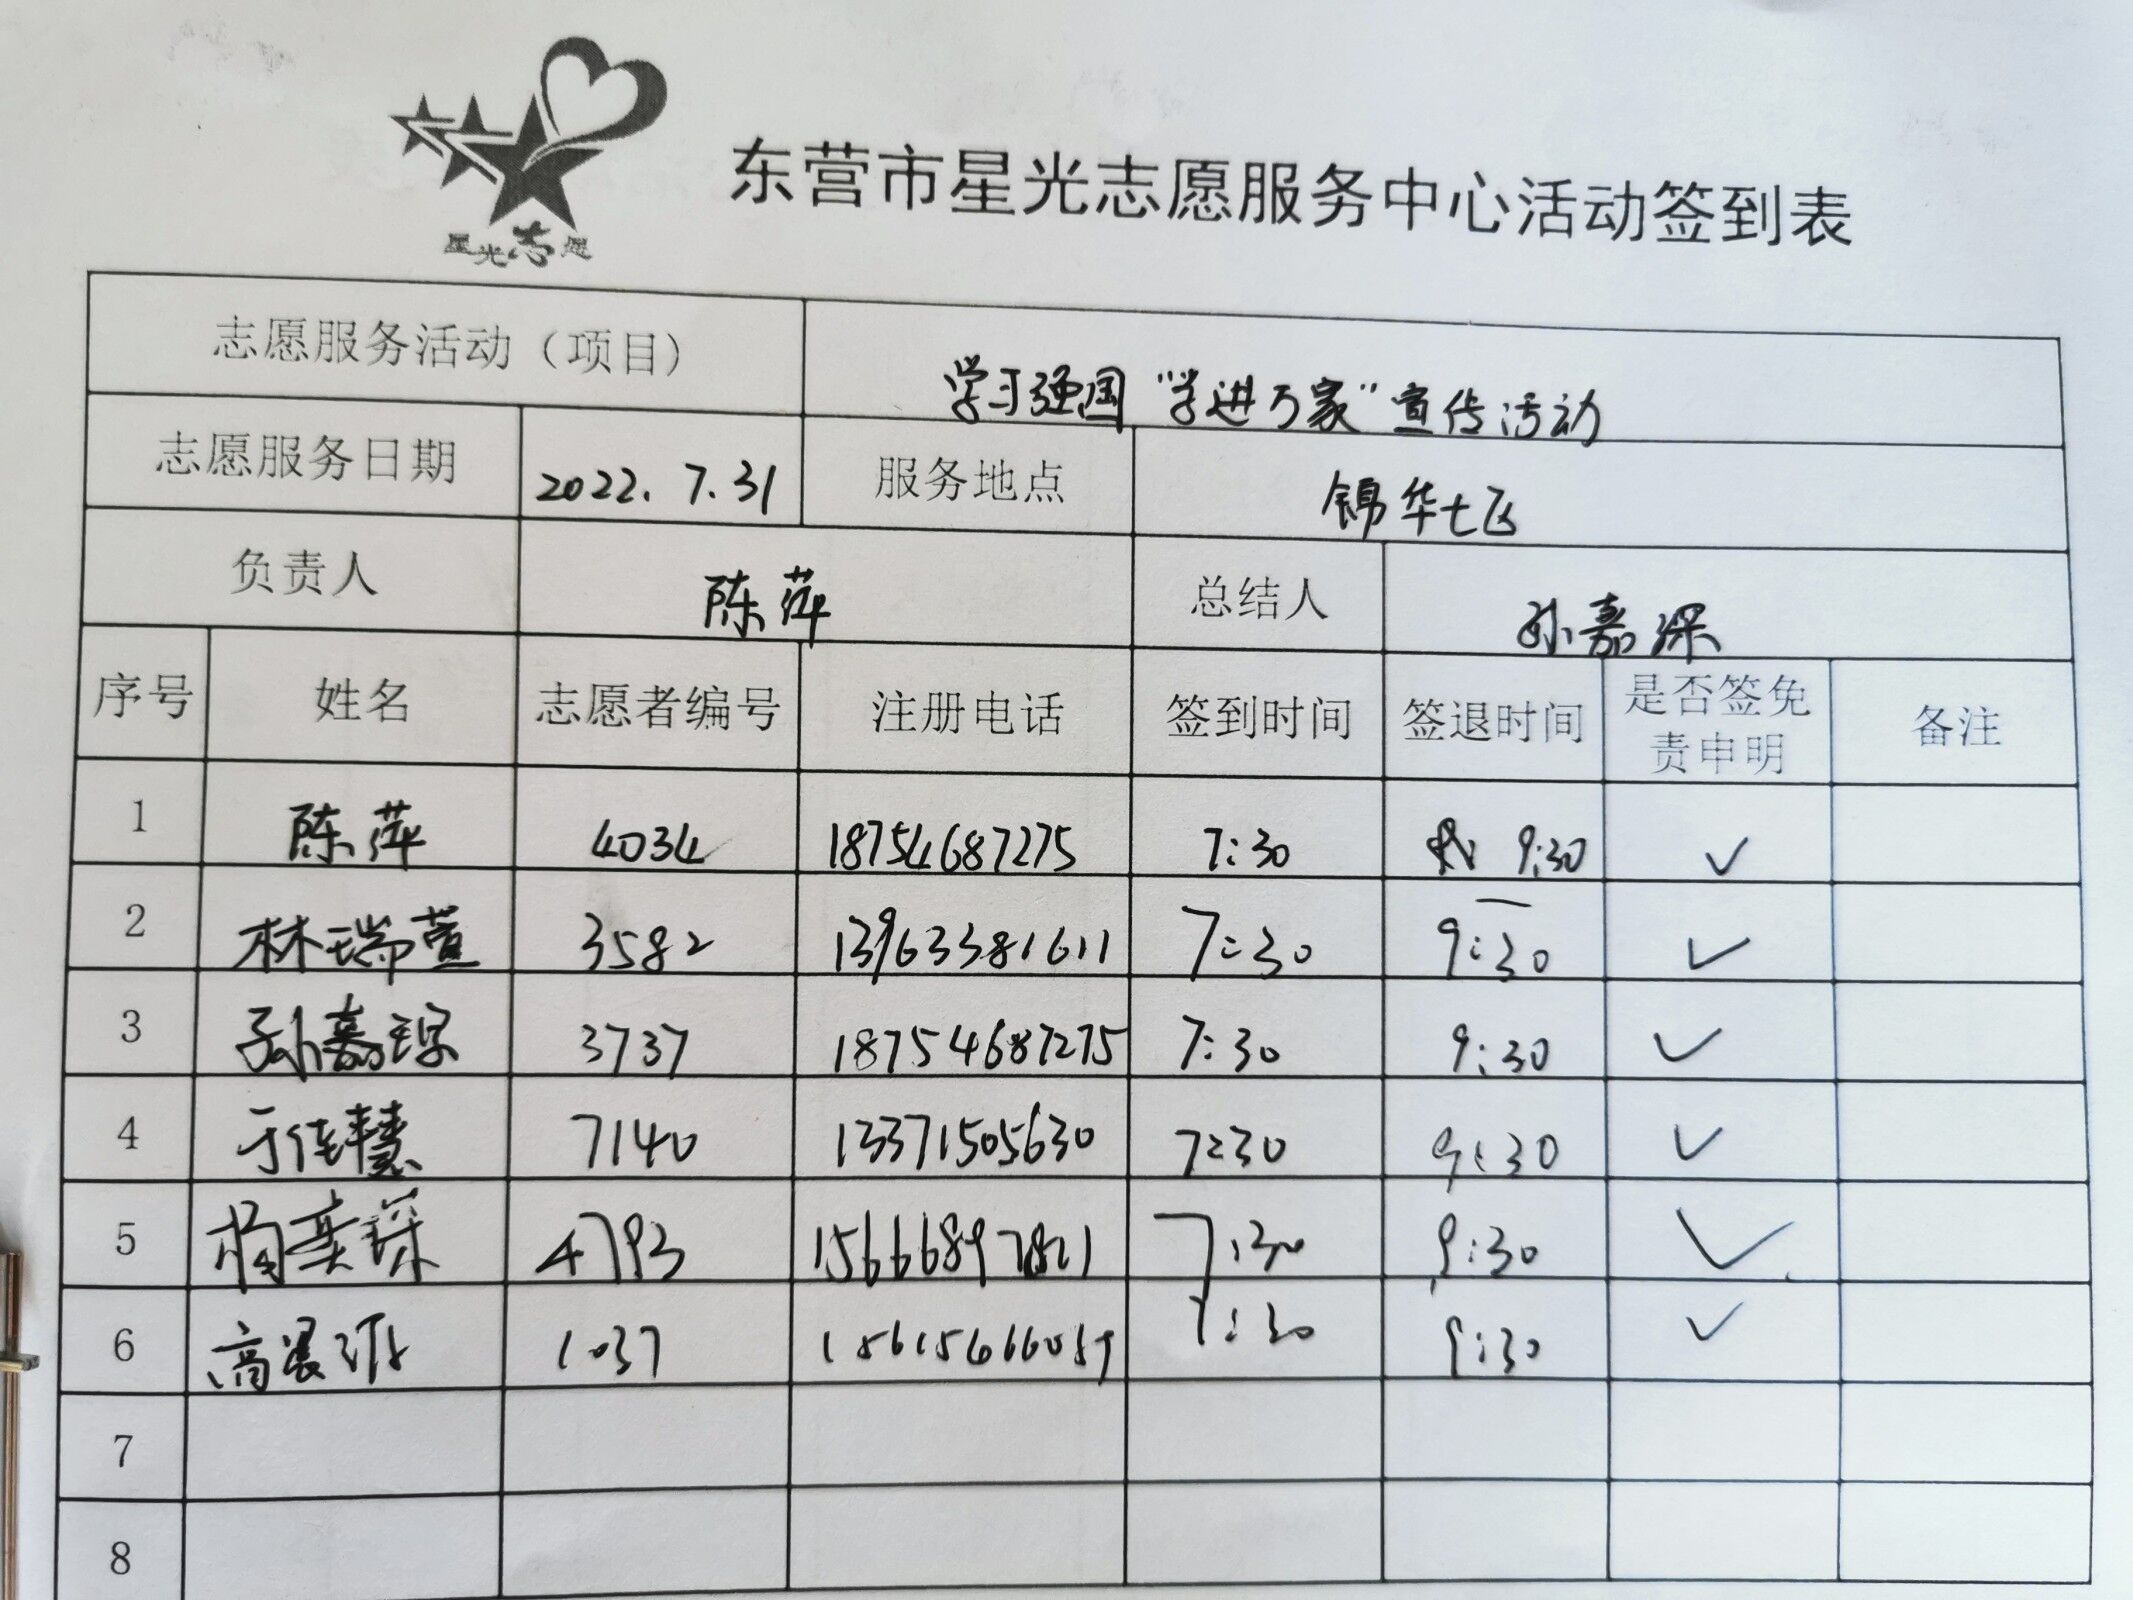 星光志愿
东营市星光志愿服务中心活动签到表
志愿服务活动（项目） 学习强国“学进万家”宣传活动
志愿服务日期 2022.7.31 服务地点 锦华七区
负责人 陈萍 总结人 孙嘉琛
序号 姓名 志愿者编号 注册电话 签到时间 签退时间 是否签免责申明 备注
1 陈萍 4034 18754687275 7:30 9:30 ✓
2 林瑞萱 3582 13963381611 7:30 9:30 ✓
3 孙嘉琛 3737 18754687275 7:30 9:30 ✓
4 于佳慧 7140 13371505630 7:30 9:30 ✓
5 杨奕琛 4793 15666897821 7:30 9:30 ✓
6 1037 7:30 9:30 ✓
7
8